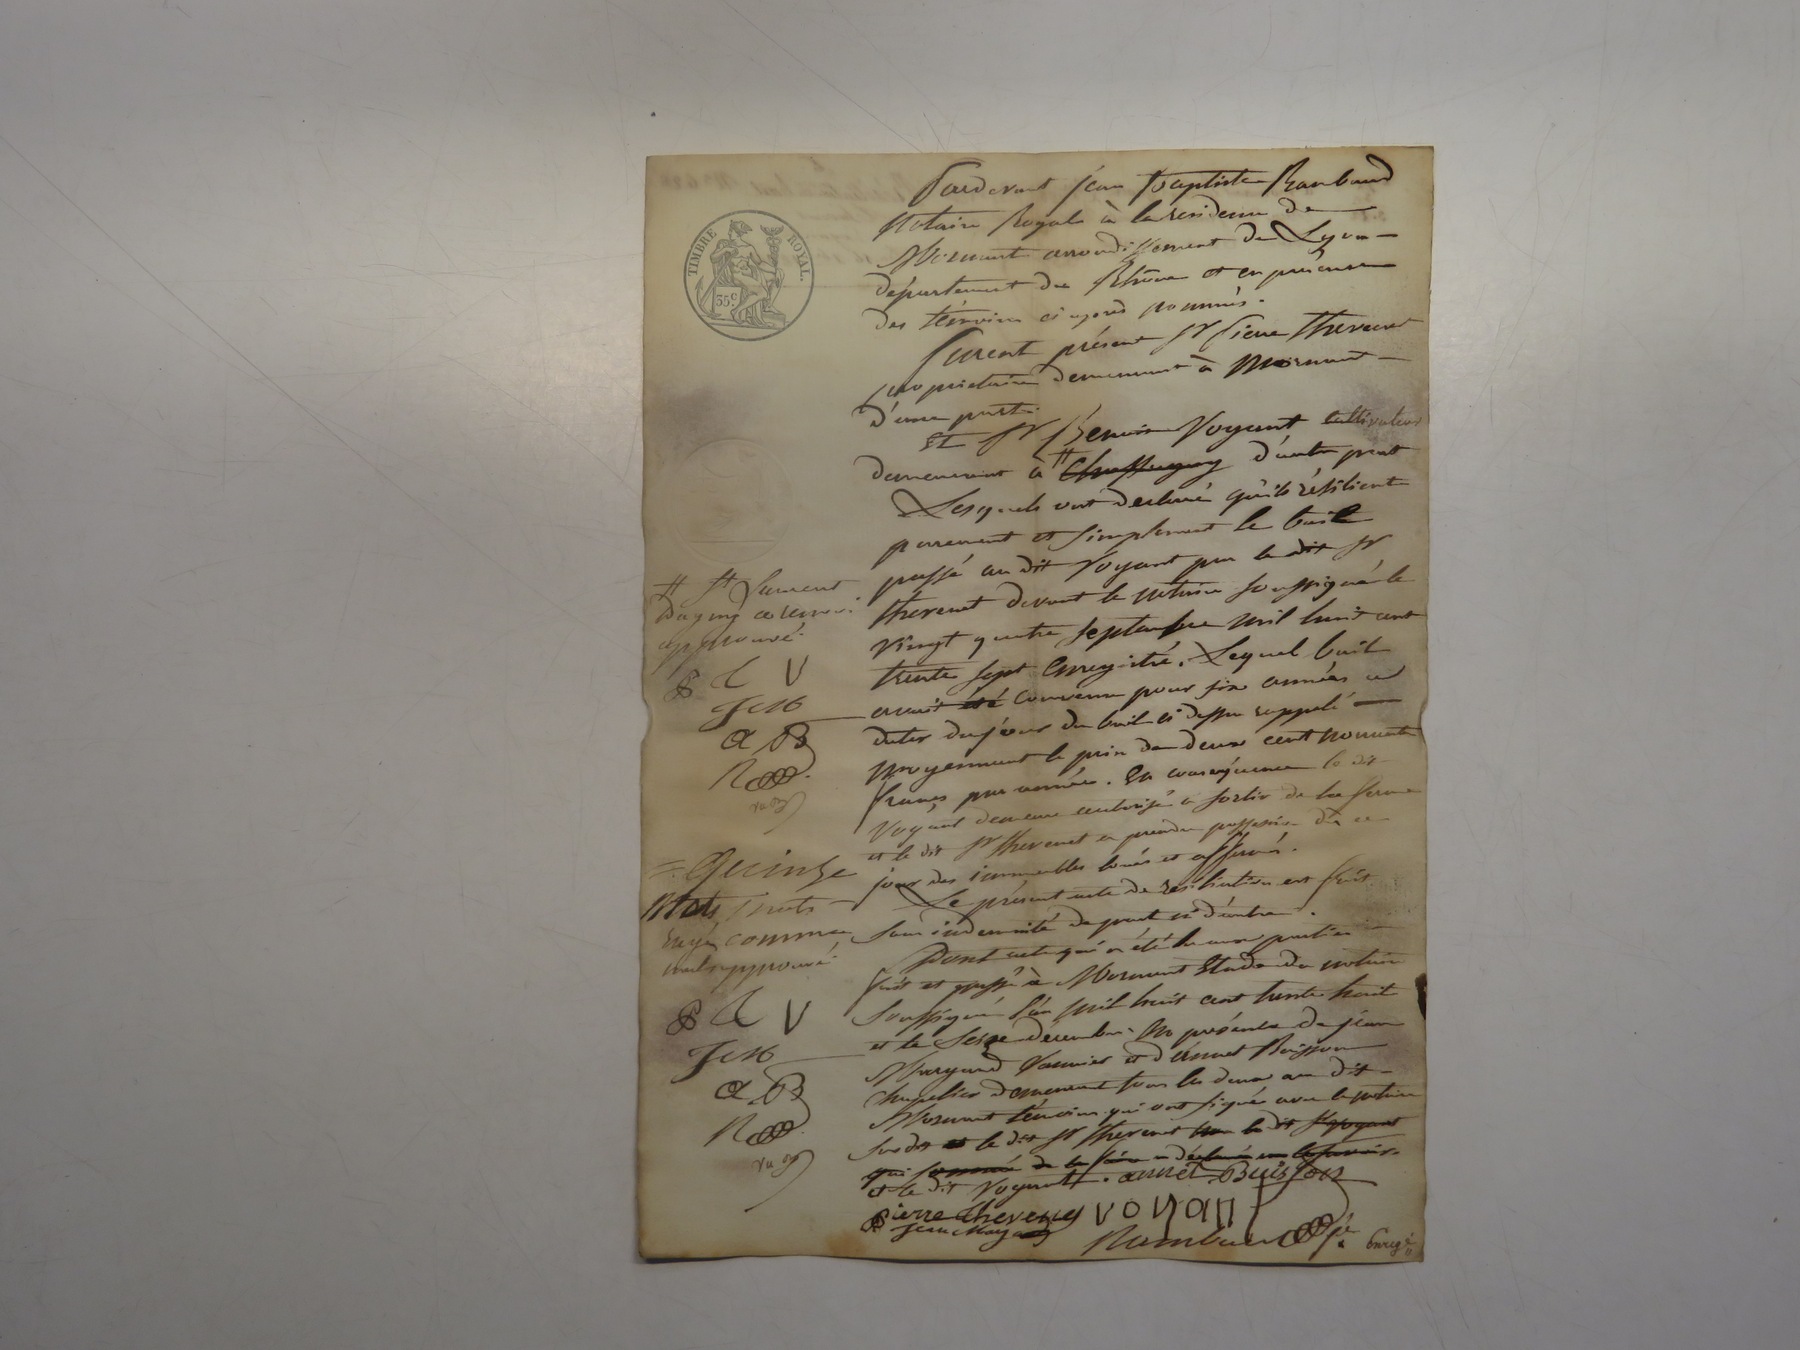 Pardevant jean baptiste Rambaud
Notaire Royal à la residence de
Mornant arrondissement de Lyon
département du Rhône et en présence
des témoins ci après nommés.
TIMBRE ROYAL.
35c.
Furent présent Sr Pierre Thevenet
propriétaire demeurant à Mornant
d'une part.
Et Sr Benoit Voyant cultivateur
demeurant à # d'autre part
Lesquels ont declaré qu'ils résilient
purement et simplement le bail
passé au dit Voyant par le dit Sr
Thevenet devant le notaire soussigné le
vingt quatre septembre mil huit cent
trente sept Enregistré. Lequel bail
avait été convenu pour six années à
dater du jour du bail ci dessus rappelé
moyennant le prix de deux cent nonante
francs par année. En conséquence le dit
Voyant demeure autorisé à sortir de la ferme
et le dit Sr Thevenet à prendre possession dès ce
jour des immeubles loués et affermés.
Le présent acte de résiliation est fait
sans indemnité de part ni d'autre.
Dont acte qui a été lu aux parties
fait et passé à Mornant Etude du notaire
soussigné l'an mil huit cent trente huit
et le seize décembre. En présence de jean
Vannier et d'Annet Buisson
chapelier demeurant tous les deux au dit
Mornant témoins qui ont signé avec le notaire
susdit et le dit Sr Thevenet non le dit Sr Voyant
qui sommé de le faire a déclaré ne le savoir.
et le dit Voyant. annet Buisson
pierre thevenet voyant
Rambaud
# St Laurent
Dagny ce renvoi
approuvé.
B V
JCM
a B
R
= Quinze
Mots nuls
rayés comme
nuls approuvé
B V
JCM
a B
R